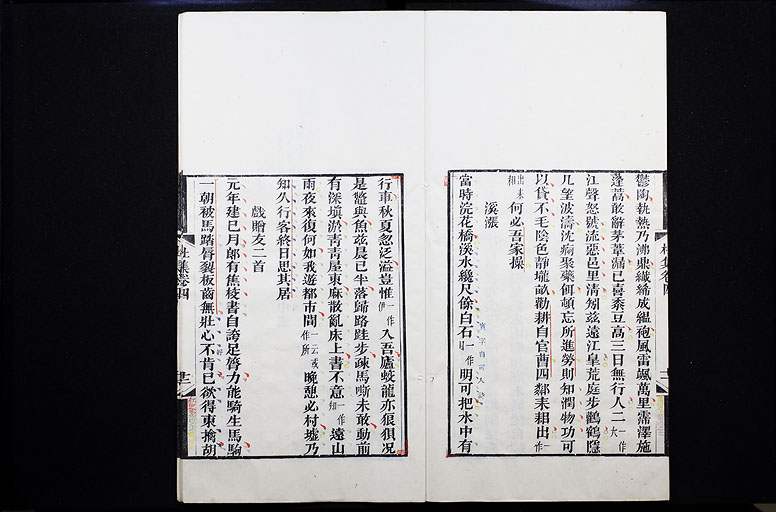 鬱陶執熱乃沸鼎纖絺成縕袍風雷颯萬里霈澤施
蓬蒿敢辭茅葦漏已喜黍豆高三日無行人二一作大
江聲怒號流惡邑里清矧茲遠江皋荒庭步鸛鶴隱
几望波濤沈痾聚藥餌頓忘所進勞則知潤物功可
以貸不毛陰色靜壠畝勸耕自官曹四鄰耒耜出一作
出耒耜何必吾家操
溪漲
當時浣花橋溪水纔尺餘白石一作月明可把水中有
行車秋夏忽泛溢豈惟一作伊入吾廬蛟龍亦狼狽况
是鼈與魚茲晨已半落歸路跬步疎馬嘶未敢動前
有深塡淤青青屋東麻散亂床上書不意一作知遠山
雨夜來復何如我遊都市間一云或作所晚憩必村墟乃
知久行客終日思其居
戲贈友二首
元年建巳月郎有焦校書自誇足膂力能騎生馬駒
一朝被馬踏脣裂板齒無壯心不肯已欲得東擒胡
杜集卷四